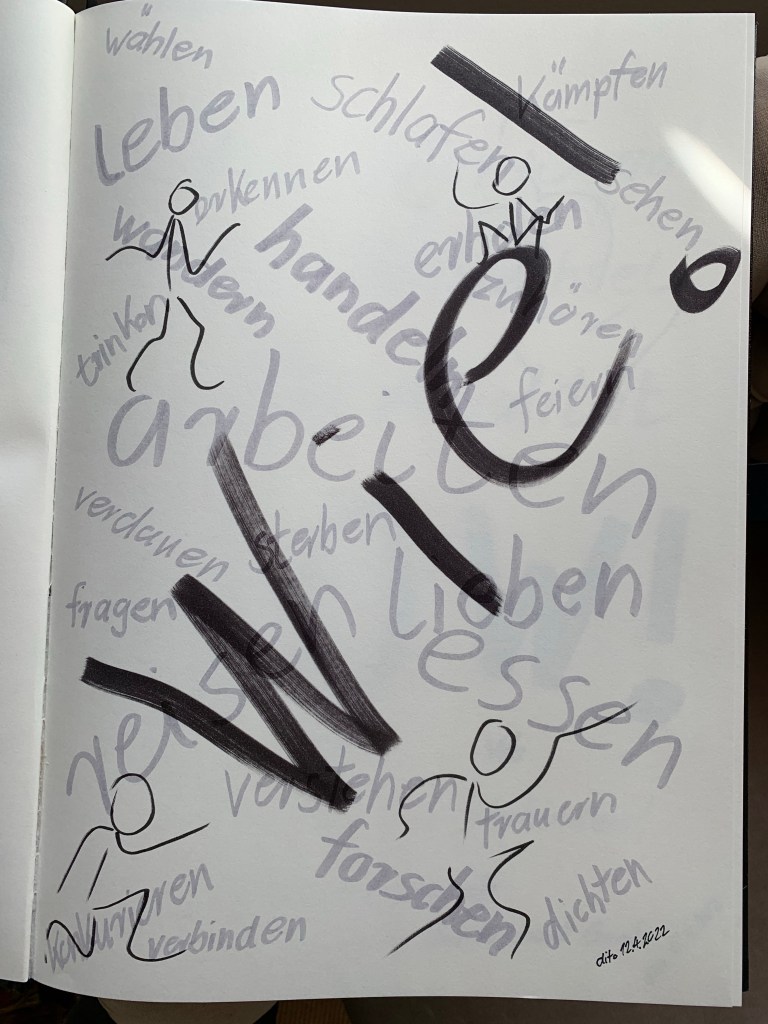 wählen
leben
schlafen
kämpfen
erkennen
sehen
wandern
handeln
erholen
zuhören
trinken
feiern
arbeiten
verdauen
sterben
lieben
fragen
reisen
essen
Wie!
verstehen
trauern
forschen
konkurieren
verbinden
dichten
dito 12.4.2022